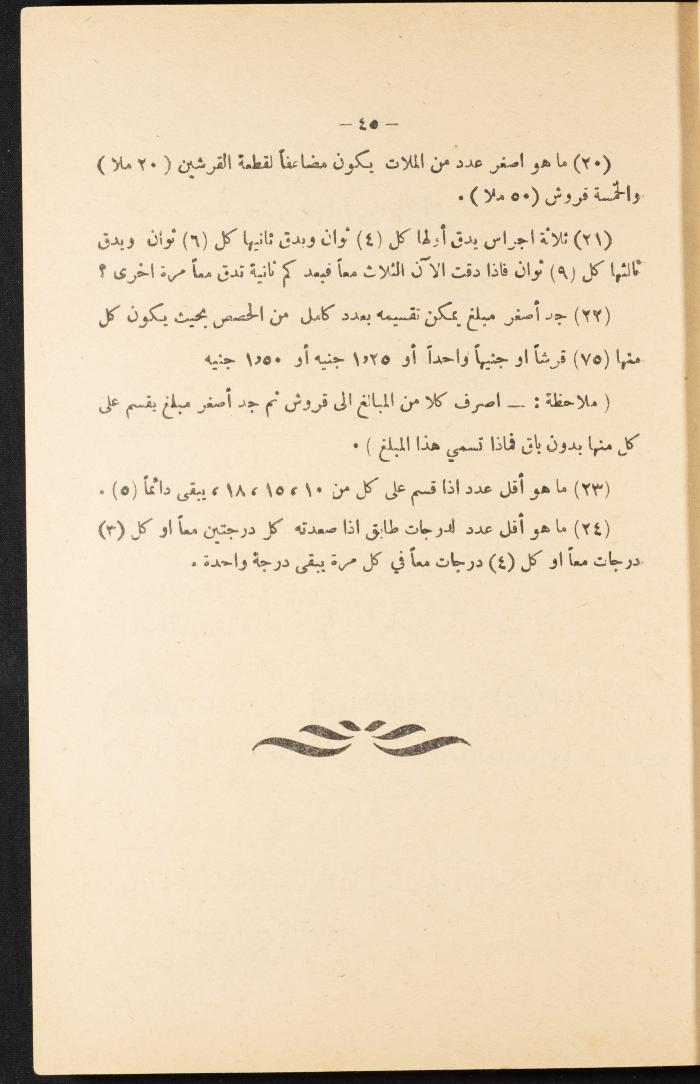 — ٤٥ —
(٢٠) ما هو اصغر عدد من الملات يكون مضاعفاً لقطعة القرشين ( ٢٠ ملا )
والخمسة قروش (٥٠ ملا ) .
(٢١) ثلاثة اجراس يدق أولها كل (٤) ثوان ويدق ثانيها كل (٦) ثوان ويدق
ثالثها كل (٩) ثوان فاذا دقت الآن الثلاث معاً فبعد كم ثانية تدق معاً مرة اخرى ؟
(٢٢) جد أصغر مبلغ يمكن تقسيمه بعدد كامل من الحصص بحيث يكون كل
منها (٧٥) قرشاً او جنيهاً واحداً أو ١٫٢٥ جنيه أو ١٫٥٠ جنيه
( ملاحظة : — اصرف كلا من المبالغ الى قروش ثم جد أصغر مبلغ يقسم على
كل منها بدون باق فماذا تسمي هذا المبلغ ) .
(٢٣) ما هو أقل عدد اذا قسم على كل من ١٠ ، ١٥ ، ١٨ ، يبقى دائماً (٥) .
(٢٤) ما هو أقل عدد لدرجات طابق اذا صعدته كل درجتين معاً او كل (٣)
درجات معاً او كل (٤) درجات معاً في كل مرة يبقى درجة واحدة .